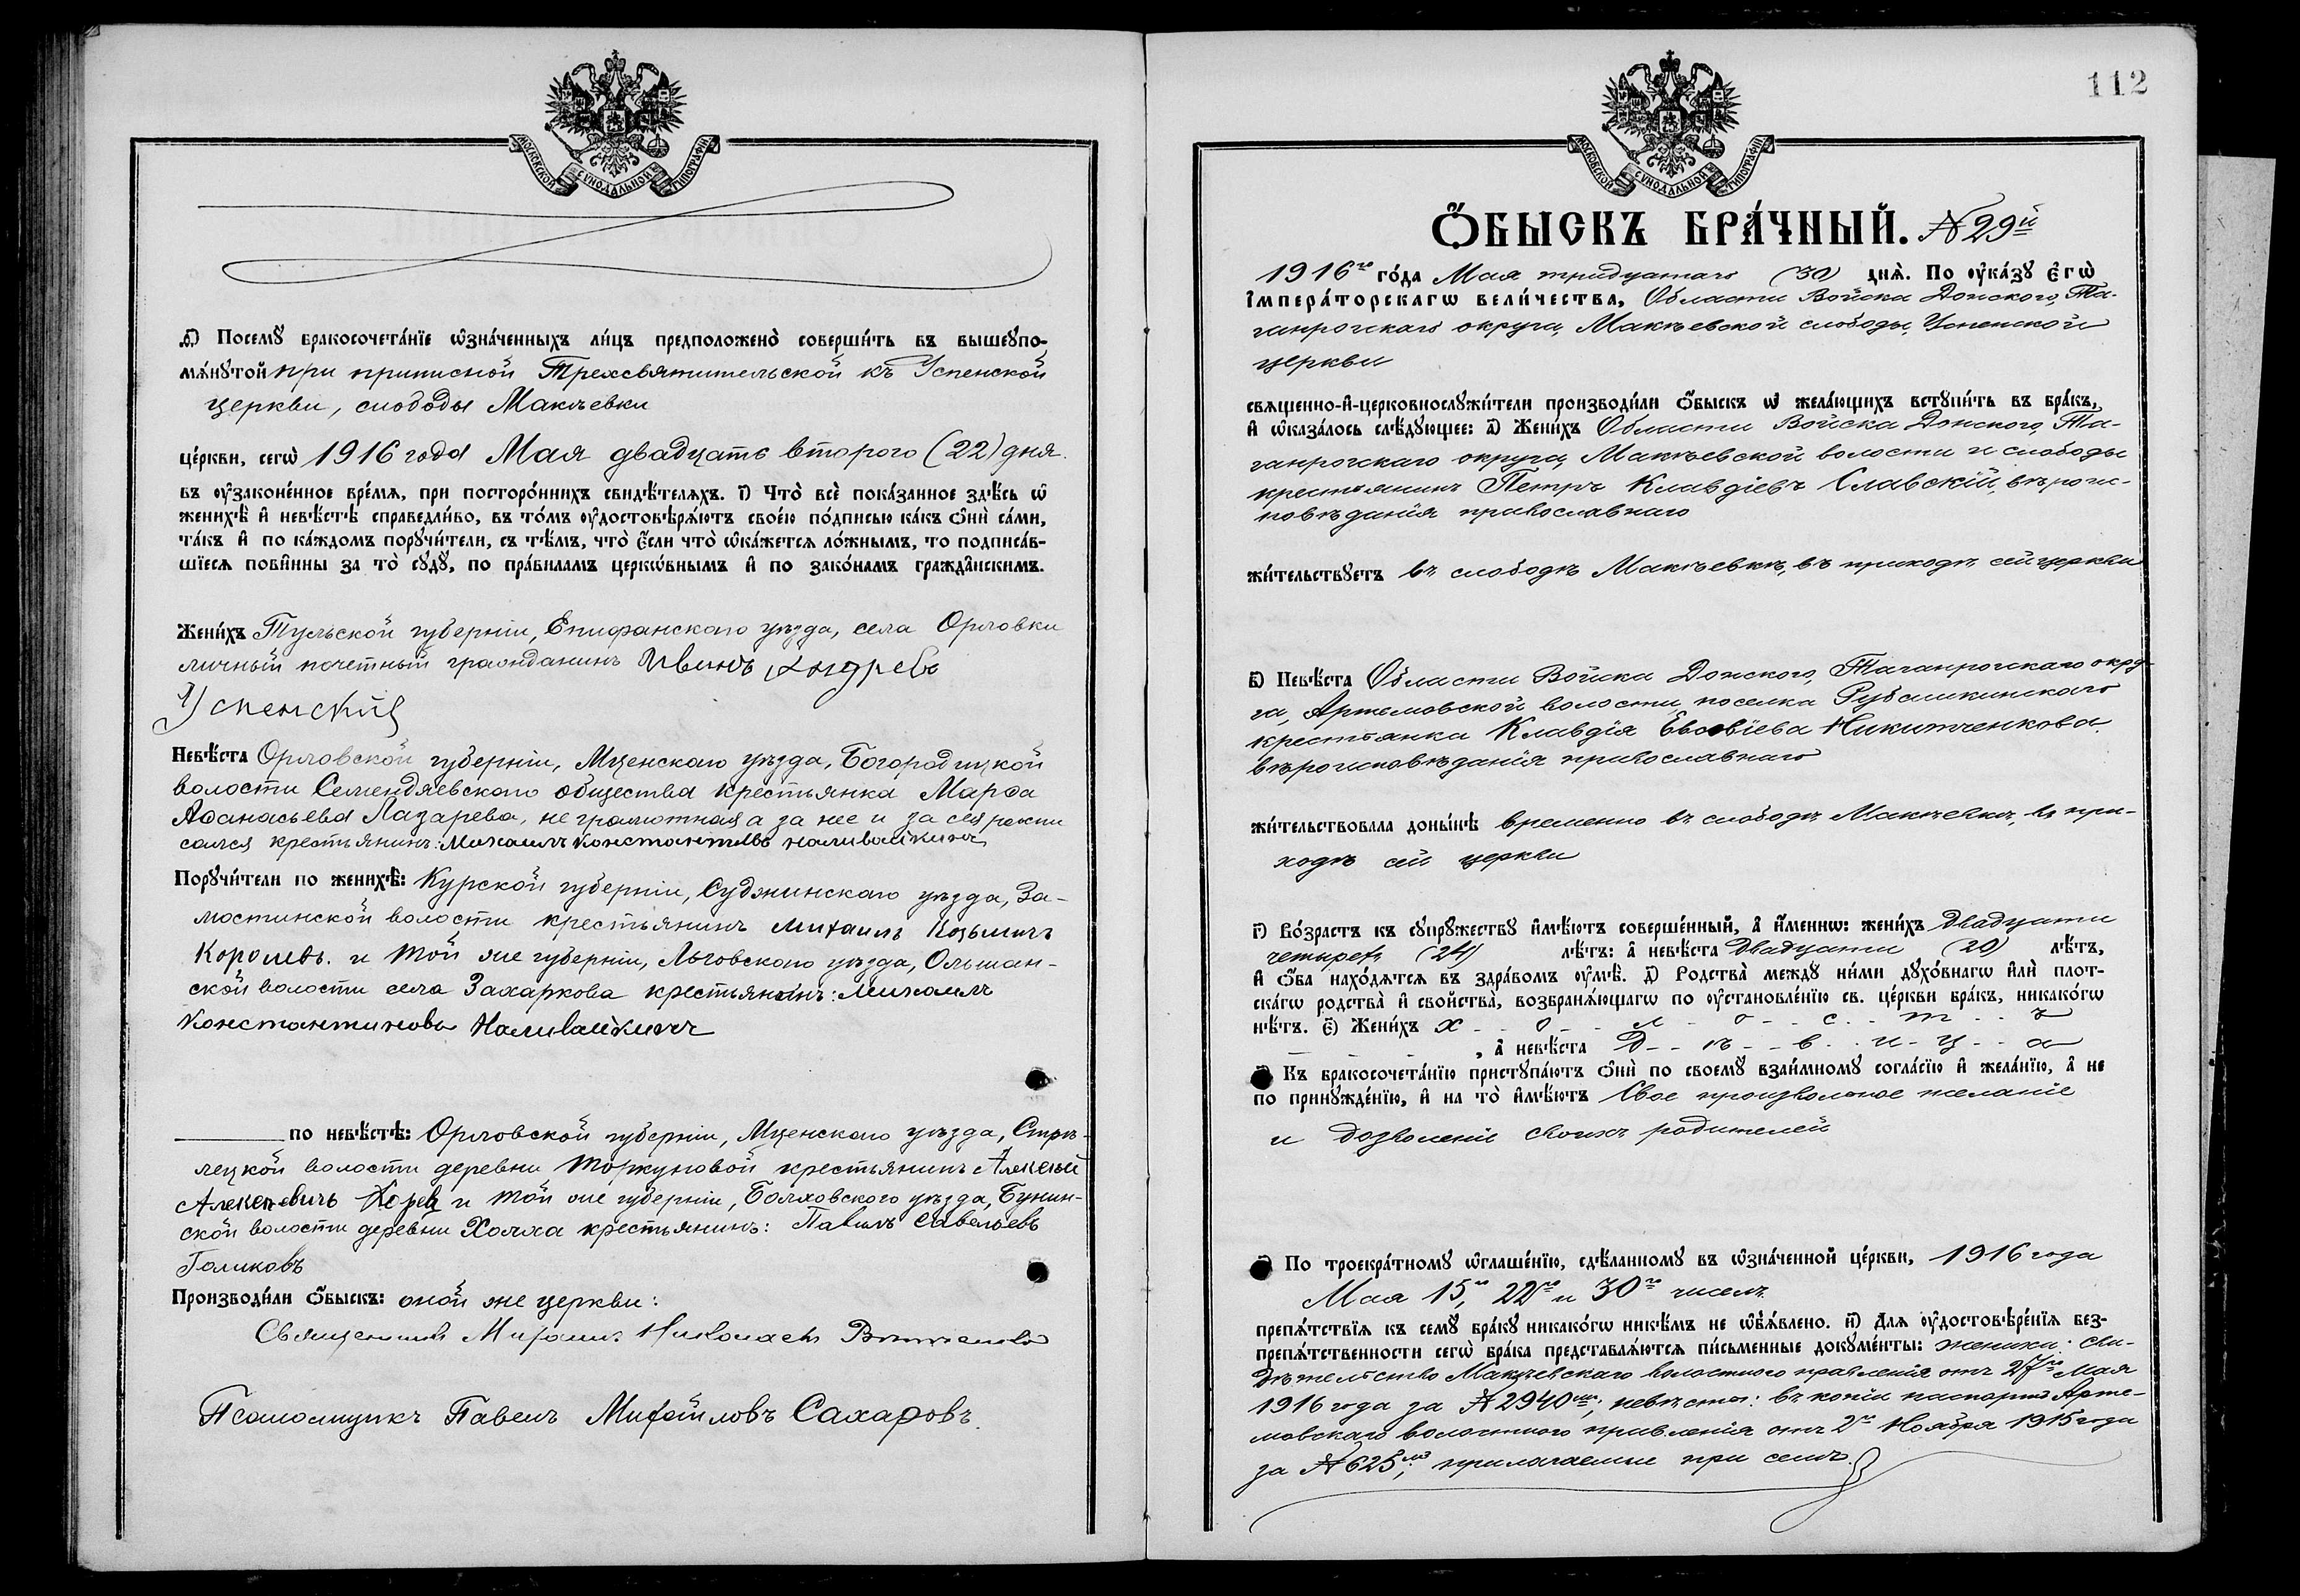 МОСКОВСКОЙ СѴНОДАЛЬНОЙ ТИПОГРАФІИ
ѳ҃) Посемꙋ̀ бракосочета́нїе ѡ҆зна́ченныхъ ли́цъ предположено̀ соверши́ть въ вышеꙋпо-
мѧ́нꙋтой при приписной Трехсвятительской къ Успенской
церкви, слободы Макѣевки
це́ркви, сегѡ̀ 1916 года Мая двадцать второго (22) дня.
въ ᲂу҆законе́нное вре́мѧ, при посторо́ннихъ свидѣ́телѧхъ. і҃) Что̀ всѐ пока́занное здѣ́сь ѡ҆
женихѣ̀ и҆ невѣ́стѣ справедли́во, въ то́мъ ᲂу҆достовѣрѧ́ютъ свое́ю по́дписью ка́къ ѻ҆нѝ са́ми,
та́къ и҆ по ка́ждомъ порꙋчи́тели, съ тѣ́мъ, что̀ є҆́сли что̀ ѡ҆ка́жетсѧ ло́жнымъ, то подписа́в-
шїесѧ пови́нны за то̀ сꙋдꙋ̀, по пра́виламъ церко́внымъ и҆ по зако́намъ гражда́нскимъ.
Жени́хъ Тульской губерніи, Епифанскаго уѣзда, села Орловки
личный почетный гражданинъ Иванъ Андревъ
Успенскій
Невѣ́ста Орловской губерніи, Мценскаго уѣзда, Богородицкой
волости Семендяевскаго общества крестьянка Марѳа
Аѳанасьева Лазарева, не грамотная а за нее и за себя роспи
сался крестьянинъ: Михаилъ Константиновъ Наливайкинъ
Порꙋчи́тели по женихѣ̀: Курской губерніи, Суджинскаго уѣзда, За-
мостинской волости крестьянинъ Михаилъ Козьмичъ
Королевъ. и той же губерніи, Льговскаго уѣзда, Ольшан-
ской волости села Захаркова крестьянинъ: Михаилъ
Константиновъ Наливайкинъ
по невѣ́стѣ: Орловской губерніи, Мценскаго уѣзда, Стрѣ-
лецкой волости деревни Торкуновой крестьянинъ Алексѣй
Алексѣевичъ и той же губерніи, Болховского уѣзда, Бунин-
ской волости деревни Холха крестьянинъ: Павелъ Савельевъ
Голиковъ
Производи́ли ѻ҆́быскъ: оной же церкви:
Священникъ Николаевъ
Псаломщикъ Павелъ Михайловъ Сахаровъ.
112
МОСКОВСКОЙ СѴНОДАЛЬНОЙ ТИПОГРАФІИ
Ѻ҆́БЫСКЪ БРА́ЧНЫЙ. № 29й
1916го го́да Мая тридцатаго (30) днѧ̀. По ᲂу҆ка́зꙋ Є҆гѡ̀
І҆мпера́торскагѡ вели́чества, Области Войска Донского, Та-
ганрогскаго округа, Макѣевской слободы, Успенской
церкви
свѧщенно-и҆-церковнослꙋжи́тели производи́ли ѻ҆́быскъ ѡ҆ жела́ющихъ встꙋпи́ть въ бра́къ,
и҆ ѡ҆каза́лось слѣ́дꙋющее: а҃) Жени́хъ Области Войска Донского, Та-
ганрогскаго округа, Макѣевской волости и слободы
крестьянинъ Петръ Клавдіевъ Славскій, вѣроис-
повѣданія православнаго
жи́тельствꙋетъ въ слободѣ Макѣевкѣ, въ приходѣ сей церкви
в҃) Невѣ́ста Области Войска Донского, Таганрогскаго окру-
га, Артемовской волости, поселка Рубашкинскаго
крестьянка Клавдія Евсевіева Никитченкова,
вѣроисповѣданія православнаго
жи́тельствовала доны́нѣ временно въ слободѣ Макѣевкѣ, въ при-
ходѣ сей церкви
г҃) Во́зрастъ къ сꙋпрꙋ́жествꙋ и҆мѣ́ютъ соверше́нный, а҆ и҆́меннѡ: жени́хъ двадцати
четырехъ (24) лѣ́тъ: а҆ невѣ́ста двадцати (20) лѣ́тъ,
и҆ ѻ҆́ба нахо́дѧтсѧ въ здра́вомъ ᲂу҆мѣ̀. д҃) Родства̀ междꙋ ни́ми дꙋхо́внагѡ и҆лѝ плот-
ска́гѡ родства̀ и҆ сво́йства, возбранѧ́ющагѡ по ᲂу҆становле́нїю св. це́ркви бра́къ, никако́гѡ
нѣ́тъ. є҃) Жени́хъ х - о - л - о - с - т - ъ
, а҆ невѣ́ста д - ѣ - в - и - ц - а
Къ бракосочета́нїю пристꙋпа́ютъ ѻ҆нѝ по своемꙋ̀ взаи́мномꙋ согла́сїю и҆ жела́нїю, а҆ не
по принꙋжде́нїю, и҆ на то̀ и҆мѣ́ютъ свое произвольное желаніе
и дозволеніе своихъ родителей
По троекра́тномꙋ ѡ҆глаше́нїю, сдѣ́ланномꙋ въ ѡ҆зна́ченной це́ркви, 1916 года
Мая 15го, 22го и 30го чиселъ
препѧ́тствїѧ къ семꙋ̀ бра́кꙋ никако́гѡ никѣ́мъ не ѡ҆бъѧ́влено. и҃) Длѧ ᲂу҆достовѣре́нїѧ без-
препѧ́тственности сегѡ̀ бра́ка представлѧ́ютсѧ пи́сьменные докꙋме́нты: жениха: сви-
дѣтельство Макѣевскаго волостного правленія отъ 27го Мая
1916 года за № 2940мъ; невѣсты: въ копіи паспортъ Арте-
мовскаго волостного правленія отъ 2го Ноября 1915 года
за № 625мъ, прилагаемые при семъ.